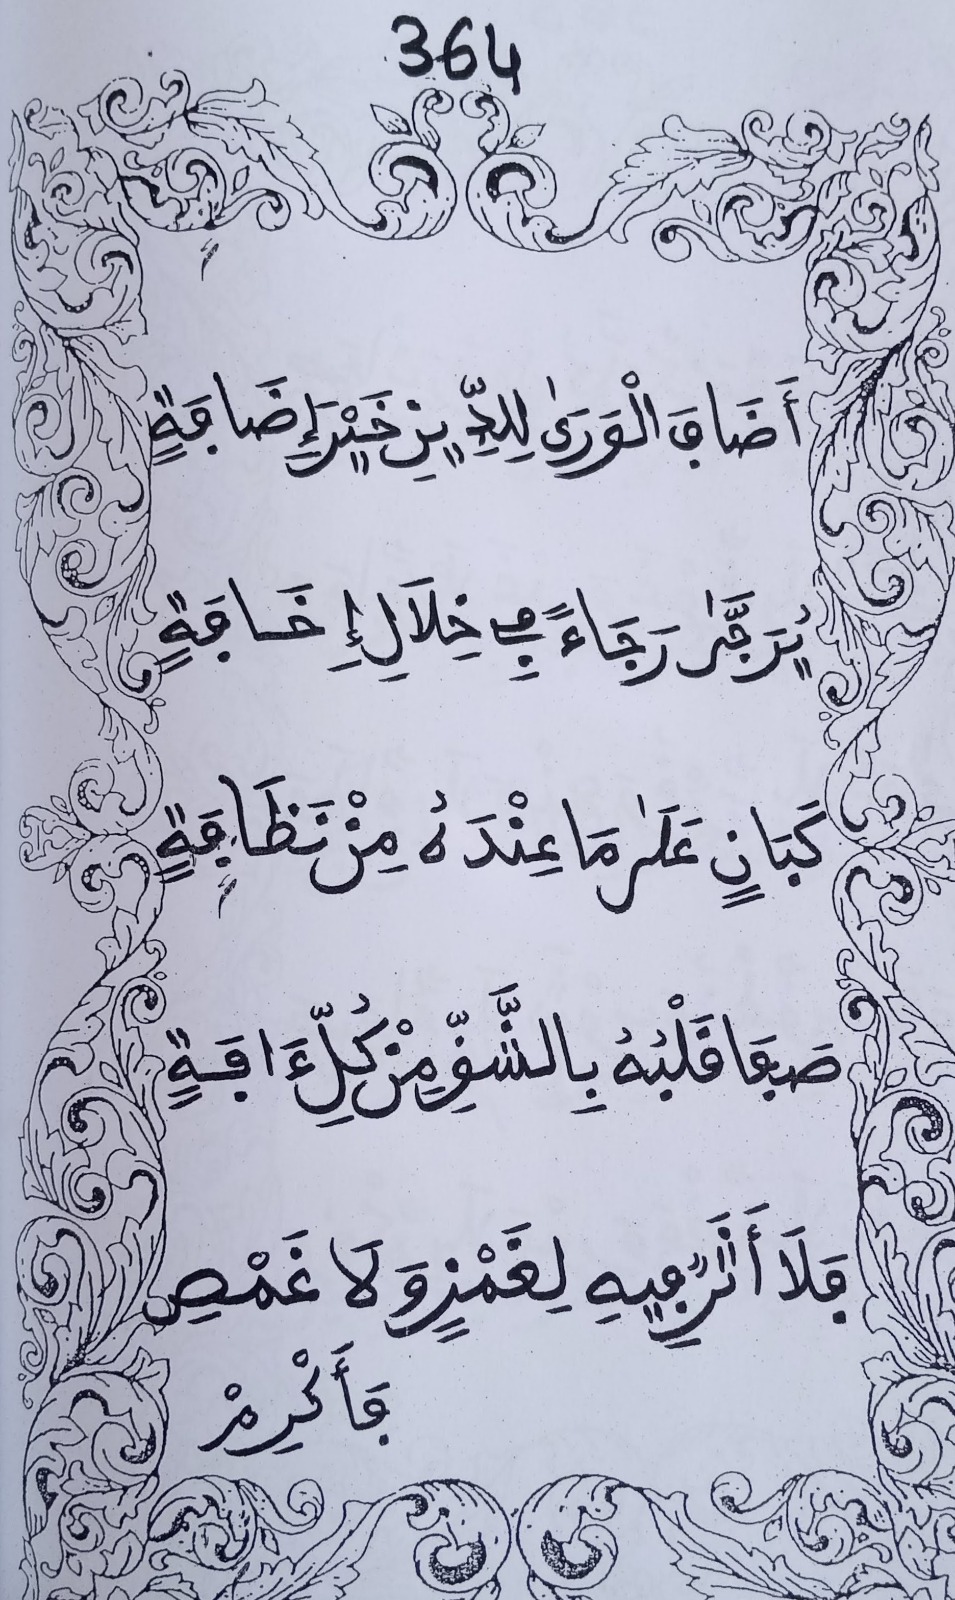 364
أَضَافَ الْوَرَىٰ لِلدِّينِ خَيْرَ إِضَافَةٍ
يُرَجَّىٰ رَجَاءً فِي خِلَالِ إِخَافَةٍ
كَبَانٍ عَلَىٰ مَا عِنْدَهُ مِنْ نَظَافَةٍ
صَفَا قَلْبُهُ بِالشَّقِّ مِنْ كُلِّ ءَافَةٍ
فَلَا أَثَرٌ فِيهِ لِغَمْزٍ وَلَا غَمْصِ
فَأَكْرِمْ